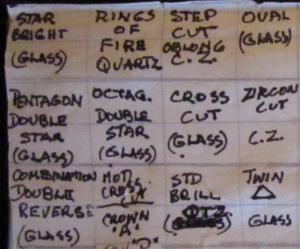 STAR BRIGHT (GLASS)
RINGS OF FIRE QUARTZ
STEP CUT OBLONG C.Z.
OVAL (GLASS)
PENTAGON DOUBLE STAR (GLASS)
OCTAG. DOUBLE STAR (GLASS)
CROSS CUT (GLASS)
ZIRCON CUT C.Z.
COMBINATION DOUBLE REVERSE (GLASS)
CROSS CROWN "A"
STD BRILL QTZ
TWIN △ GLASS